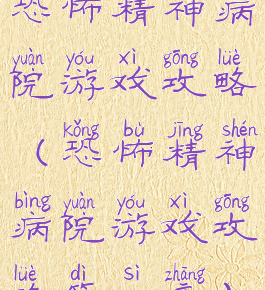 恐怖精神病
yuàn yóu xì gōng lüè
院游戏攻略
kǒng bù jīng shén
（恐怖精神
bìng yuàn yóu xì gōng
病院游戏攻
lüè dì sì zhāng